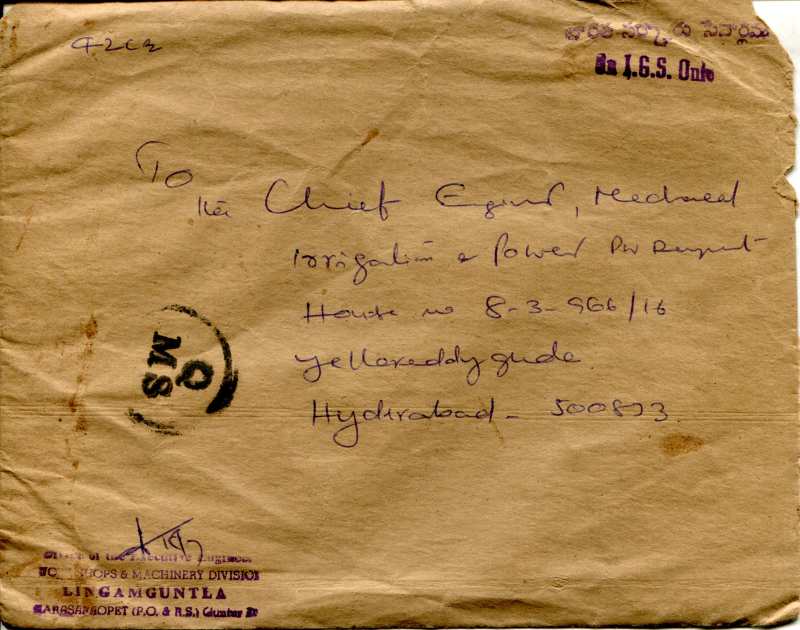 భారత సర్కారు సేవార్థము
On I.G.S. Only
To
the Chief Engineer, Mechanical
Irrigation & Power
House no 8-3-966/16
Yellareddyguda
Hyderabad - 500873
Q
MS
Office of the Executive Engineer
WORKSHOPS & MACHINERY DIVISION
LINGAMGUNTLA
NARASARAOPET (P.O. & R.S.) Guntur Dt